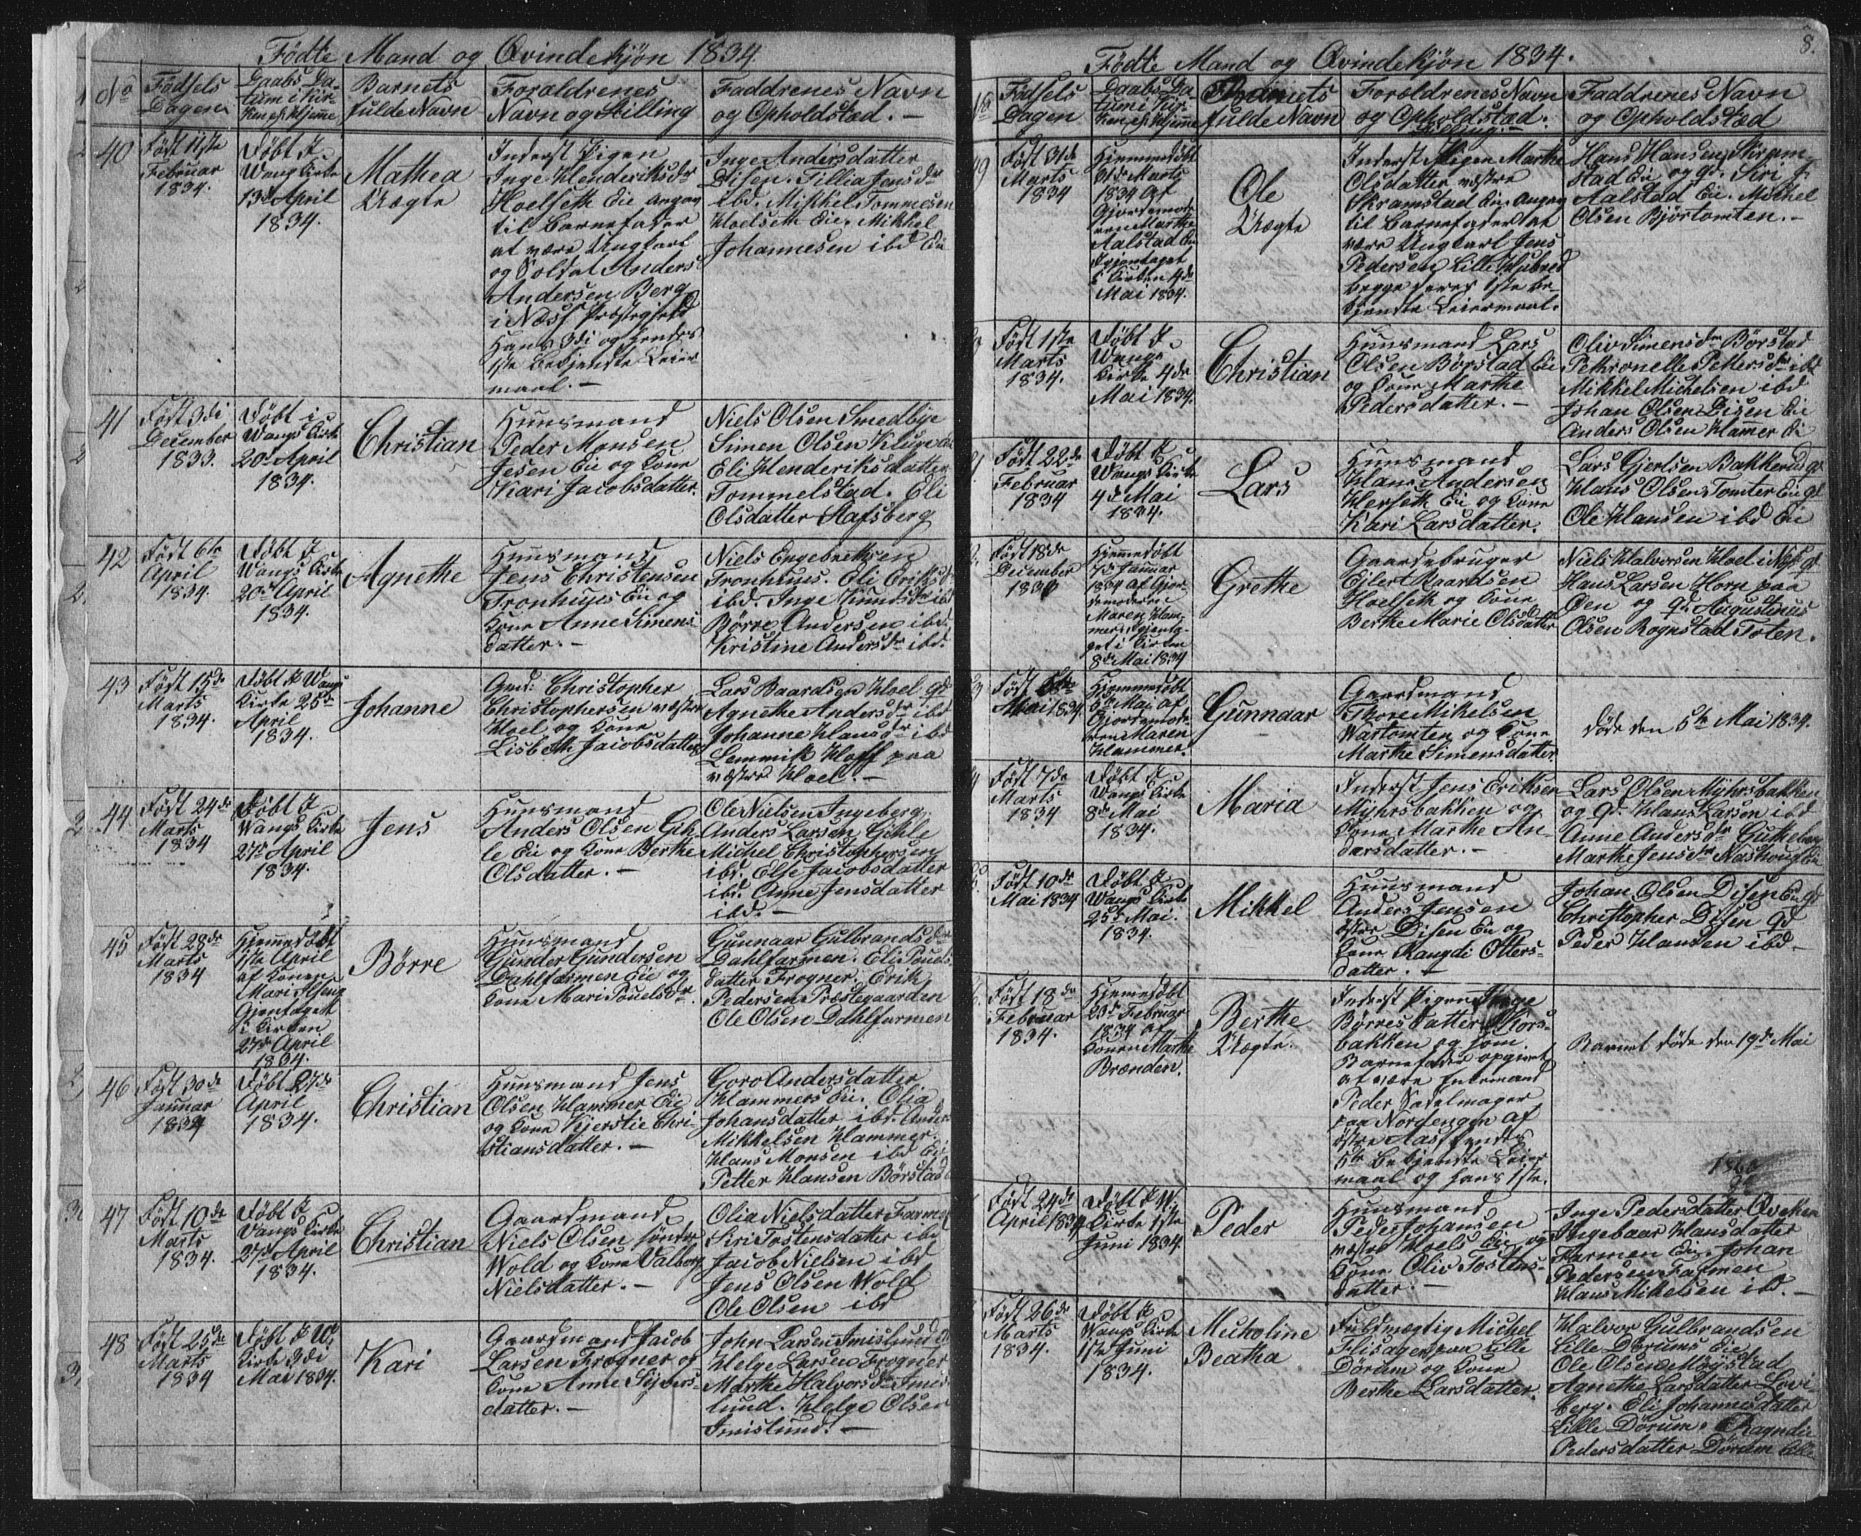 Fødte Mand og Qvindekjøn 1834.
No
Fødsels
Dagen
Daabs Da-
tum i Kir-
ken el. Hjemme
Barnets
fulde Navn
Forældrenes
Navn og Stilling
Faddrenes Navn
og Opholdstæd. —
40
Født 11te
Februar
1834.
Døbt i
Wang Kirke
13de April
1834.
Mathea
Uægte
Inderst Pigen
Inge Henderiksdr
Hoelseth Eie angav
til Barnefader
at være Ungkarl
og Soldat Anders
Andersen Berg
i Næss Præstegjeld
Hans 3di og hendes
1ste Bekjendte Leier-
maal. —
Inge Andersdatter
Disen. Sillia Jensdr
ibd. Mikkel Tommesen
Hoelseth Eie. Mikkel
Johannesen ibd Eie
41
Født 3di
December
1833.
Døbt i
Wangs Kirke
20de April
1834.
Christian
Huusmand
Peder Monsen
Jesen Eie og Kone
Kari Jacobsdatter.
Niels Olsen Smedbye
Simen Olsen Klum
Eli Henderiksdatter
Tommelstad. Eli
Olsdatter Stafsberg
42
Født 6te
April
1834.
Døbt i
Wangs Kirke
20de April
1834.
Agnethe
Huusmand
Jens Christensen
Tronhuus Eie og
Kone Anne Simens-
datter. —
Niels Engebretsen
Tronhuus. Eli Eriksdr
ibd. Inge Knudsdr ibd
Børre Andersen ibd.
Kristine Andersdr ibd.
43
Født 15de
Marts
1834.
Døbt i Wangs
Kirke 25de
April
1834.
Johanne
Gmd: Christopher
Christophersen vestre
Hoel og Kone
Lisbeth Jacobsdatter
Lars Baardsen Hoel gd
Agnethe Andersdr ibd
Johanne Hansdr ibd
Lemmik Hoff paa
vestre Hoel. —
44
Født 24de
Marts
1834
Døbt i
Wangs Kirke
27de April
1834.
Jens
Huusmand
Anders Olsen Gih-
le Eie og Kone Berthe
Olsdatter. —
Ole Nielsen Ingeberg.
Anders Larsen Gihle
Michel Christophersen
ibd. Else Jacobsdatter
ibd. Anne Jensdatter
ibd. —
45
Født 28de
Marts
1834
Hjemmedøbt
1ste April
af Konen
Mari Ilseng
Gjentaget
i Kirken
27de April
1834.
Børre
Huusmand
Gunder Gundersen
Dahlfarmen Eie og
Kone Mari Pouelsdr.
Gunnaar Gulbrandsdr
Dahlfarmen. Eli Pouels-
datter Frogner. Erik
Pedersen Præstegaarden
Ole Olsen Dahlfarmen
46
Født 30de
Januar
1834
Døbt 27de
April
1834.
Christian
Huusmand Jens
Olsen Hammer Eie
og Kone Kjerstie Chri-
stiansdatter. —
Goro Andersdatter
Hammers Eie. Olia
Johansdatter ibd. Anders
Mikkelsen Hammer.
Hans Monsen ibd Eie
Petter Hansen Børstad
47
Født 10de
Marts
1834.
Døbt i
Wangs Kirke
27de April
1834.
Christian
Gaardmand
Niels Olsen søndre
Wold og Kone Valborg
Nielsdatter. —
Olia Nielsdatter Farmen
Siri Tostensdatter ibd
Jacob Nielsen ibd
Jens Olsen Wold
Ole Olsen ibd
48
Født 25de
Marts
1834
Døbt i W.
Kirke 3di
Mai 1834.
Kari
Gaardmand Jacob
Larsen Frogner og
Kone Anne Sijvers-
datter. —
John Larsen Imislund
Helge Larsen Frogner
Marthe Halvorsdr Imis-
lund. Helge Olsen
Imislund. —
8.
Fødte Mand og Qvindekjøn 1834.
No
Fødsels
Dagen
Daabs Da-
tum i Kir-
ken el. Hjemme
Barnets
fulde Navn
Forældrenes Navn
og Opholdstæd.
Stilling. —
Faddrenes Navn
og Opholdstæd
Født 31de
Marts
1834
Hjemmedøbt
31de Marts
1834 af
Gjordemode-
ren Marthe
Aalstad Eie
Igjentaget
i Kirken 4de
Mai 1834.
Ole
Uægte
Inderst Pigen Marthe
Olsdatter vestre
Skramstad Eie. Angav
til Barnefader at
være Ungkarl Jens
Pedersen Lille Hubred
begge deres 1ste be-
kjendte Leiermaal.
Hans Hansen Skram-
stad Eie og gd. Siri
Aalstad Eie. Michel
Olsen Bjørtomten. —
Født 1ste
Marts
1834.
Døbt i
Wangs
Kirke 4de
Mai 1834.
Christian
Huusmand Lars
Olsen Børstad Eie
og Kone Marthe
Pedersdatter. —
Oliv Simensdr Børstad
Pethronelle Pettersdr ibd
Mikkel Michelsen ibd
Johan Olsen Disen Eie
Anders Olsen Hammer Ei
Født 22de
Februar
1834
Døbt i
Wangs Kirke
4de Mai
1834.
Lars
Huusmand
Hans Andersen
Herseth Eie og Kone
Kari Larsdatter.
Lars Gjerlsen Bakkerud gd
Hans Olsen Tomter Eie gd
Ole Hansen ibd Eie
Født 18de
December
Hjemmedøbt
7de Januar
1834 af Gjor-
demoderen
Maren Ham-
mer igjentag-
get i Kirken
8de Mai 1834
Grethe
Gaardebruger
Eilert Raardsen
Hoelseth og Kone
Berthe Marie Olsdatter
Niels Halvorsen Hoel i Næs gd
Hans Larsen Horn paa
Øen og gd. Augustinus
Olsen Rognstad Toten.
Født
Mai 1834
Hjemmedøbt
5te Mai af
Gjordemode-
ren Maren
Hammer.
Gunnaar
Gaardmand
Thore Mikelsen
Wartomten og Kone
Marthe Simensdatter
døde den 5te Mai 1834.
Født 7de
Marts
1834
Døbt i
Wangs Kirke
8de Mai
1834.
Maria
Inderst Jens Eriksen
Myhrsbakken og
Kone Marthe An-
dersdatter. —
Lars Olsen Myhrsbakken
og gd. Hans Larsen ibd
Anne Andersdr
Marthe Jensdr Nashoug Eie
Født 10de
Mai 1834
Døbt i
Wangs Kirke
25de Mai.
1834.
Mikkel
Huusmand
Anders Jensen
østre Disen Eie og
Kone Rangdi Otters-
datter. —
Johan Olsen Disen Eie gd
Christopher Disen gd
Peder Hansen ibd —
Født 18de
Februar
1834.
Hjemmedøbt
23de Februar
1834 af
Konen Marthe
Brænden.
Berthe
Uægte.
Inderst Pigen Inge
Børresdatter Kors-
bakken og som
Barnefader opgivet
at være Inderstmand
Peder Sadelmager
paa Nordengen af
østre Aas hendes
5te bekjendte Leier-
maal og hans 1ste.
Barnet døde den 19de Mai
1860
Født 24de
April 1834
Døbt i W.
Kirke 1ste
Juni 1834.
Peder
Huusmand
Peder Johansen
vestre Hoels Eie og
Kone Oliv Tostens-
datter —
Inge Pedersdatter Qveken
Ingebaar Hansdatter
Farmen Eie. Johan
Pedersen Farmen
Hans Mikelsen ibd. —
Født 26de
Marts
1834.
Døbt i
Wangs Kirke
1ste Juni
1834.
Micholine
Beatha
Fuldmægtig Michel
Flisager paa Lille
Dørum og Kone
Berthe Larsdatter.
Halvor Gulbrandsen
Lille Dørums Eie
Ole Olsen Møystad
Agnethe Larsdatter Lovi-
berg. Eli Johannesdatter
Lille Dørum. Ragndie
Pedersdatter Dørum Lille